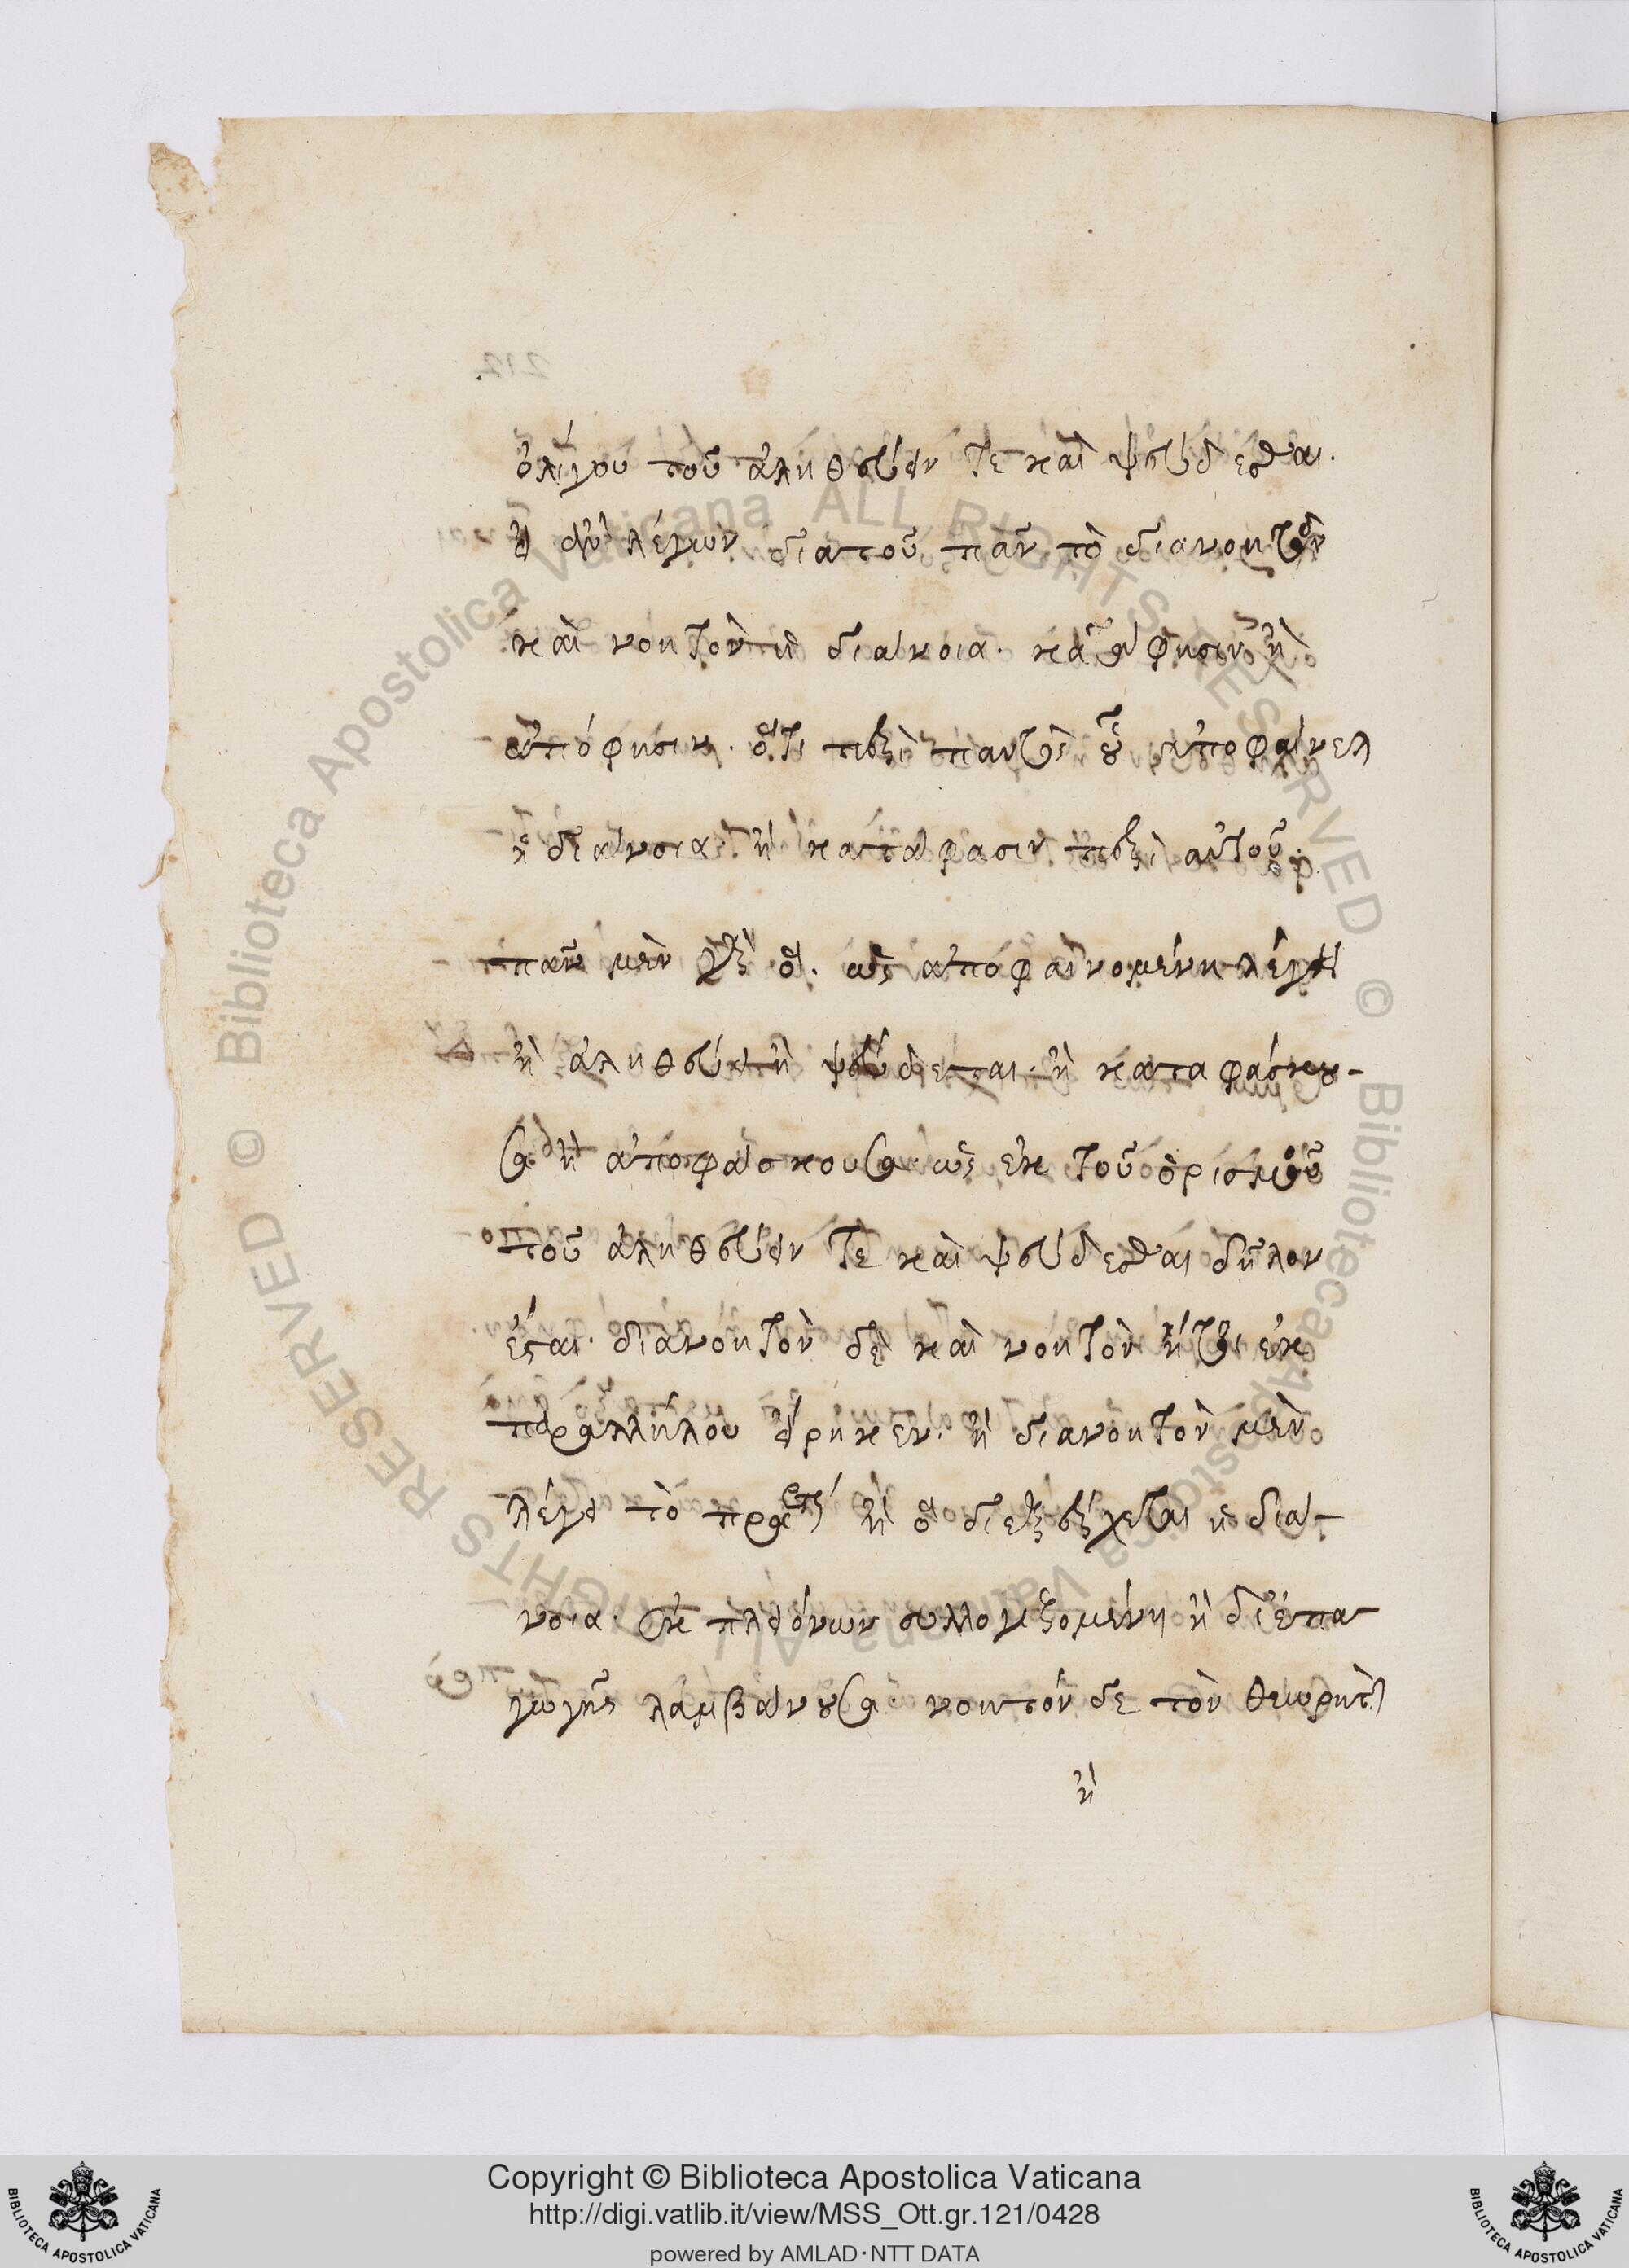 ὀλίγου τοῦ ἀληθεύειν τε καὶ ψεύδεσθαι.
εἰ οὖν λέγων διὰ τοῦ πᾶν τὸ διανοητὸν
καὶ νοητὸν ἡ διάνοια. κατάφησιν ἢ
ἀπόφησιν. ὅτι περὶ παντὸς οὗ ἀποφαίνεται
ἡ διάνοια ἢ κατάφασιν περὶ αὐτοῦ.
πᾶν μὲν γὰρ ὃ. ὡς ἀποφαινομένη λέγει
ἢ ἀληθεύει ἢ ψεύδεται. ἢ καταφάσκου-
σα ἢ ἀποφάσκουσα ὡς ἐκ τοῦ ὁρισμοῦ
τοῦ ἀληθεύειν τε καὶ ψεύδεσθαι δῆλον
ἔσται. διανοητὸν δὲ καὶ νοητὸν ἤτοι ἐκ
παραλλήλου εἴρηκεν. ἢ διανοητὸν μὲν
λέγει τὸ πρακτὸν ἢ ὃ διεξέρχεται ἡ διά-
νοια. ἐκ πλειόνων συλλογιζομένη ἢ δι' ἐπα-
γωγῆς λαμβάνουσα νοητὸν δὲ τὸν θεωρητὸν
ἢ
Copyright © Biblioteca Apostolica Vaticana
http://digi.vatlib.it/view/MSS_Ott.gr.121/0428
powered by AMLAD·NTT DATA
BIBLIOTECA APOSTOLICA VATICANA
BIBLIOTECA APOSTOLICA VATICANA
© Biblioteca Apostolica Vaticana ALL RIGHTS RESERVED
© Biblioteca Apostolica Vaticana ALL RIGHTS RESERVED